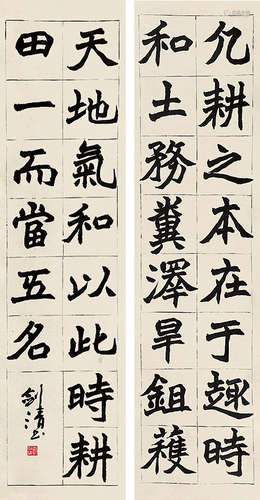 凡耕之本在于趣時
和土務糞澤旱鉏穫
天地氣和以此時耕
田一而當五名
劍清书